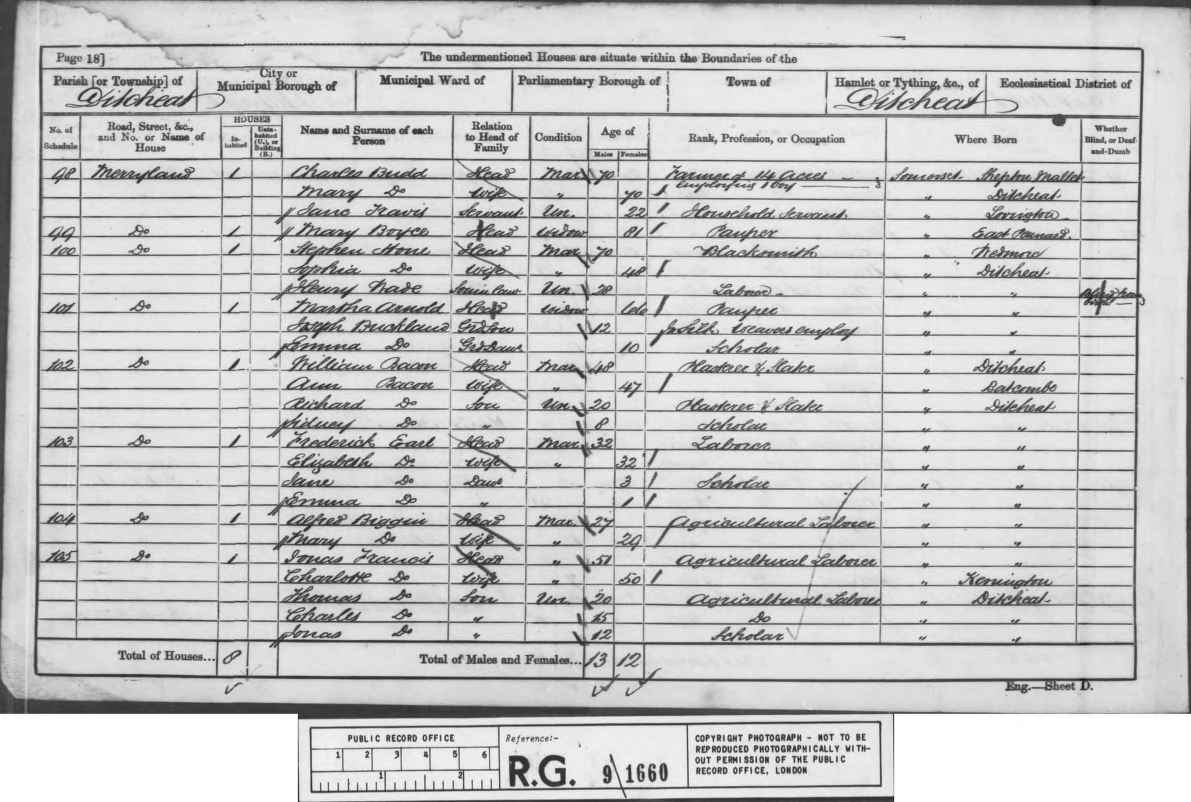 Page 18] The undermentioned Houses are situate within the Boundaries of the
Parish [or Township] of City or Municipal Borough of Municipal Ward of Parliamentary Borough of Town of Hamlet or Tything, &c., of Ecclesiastical District of
Ditcheat Ditcheat
No. of Schedule Road, Street, &c., and No. or Name of House HOUSES Inhabited Uninhabited (U.), or Building (B.) Name and Surname of each Person Relation to Head of Family Condition Age of Males Females Rank, Profession, or Occupation Where Born Whether Blind, or Deaf-and-Dumb
98 Merryland 1 Charles Budd Head Mar 70 Farmer of 14 Acres Somerset Shepton Mallet
employing 1 boy
Mary Do Wife " 70 " Ditcheat
Jane Travis Servant Un. 22 Household Servant " Lovington
99 Do 1 Mary Boyce Head Widow 81 Pauper " East Pennard
100 Do 1 Stephen Stone Head Mar 70 Blacksmith " Wedmore
Sophia Do Wife " 48 " Ditcheat
Henry Wade Son in law Un. 28 Labour " "
101 Do 1 Martha Arnold Head Widow 66 Pauper " "
Joseph Buckland GrdSon 12 Silk Weavers employ " "
Emma Do GrdDaur 10 Scholar " "
102 Do 1 William Bacon Head Mar 48 " Ditcheat
Ann Bacon Wife " 47 " Batcombe
Richard Do Son Un. 20 " Ditcheat
Sidney Do " 8 Scholar " "
103 Do 1 Frederick Earl Head Mar 32 Laborer " "
Elizabeth Do Wife " 32 " "
Jane Do Daur 3 Scholar " "
Emma Do " 1 " "
104 Do 1 Alfred Biggin Head Mar 27 Agricultural Laborer " "
Mary Do Wife " 29 " "
105 Do 1 Jonas Francis Head " 51 Agricultural Laborer " "
Charlotte Do Wife " 50 "
Thomas Do Son Un. 20 Agricultural Laborer " Ditcheat
Charles Do " 15 Do " "
Jonas Do " 12 Scholar " "
Total of Houses... 8 Total of Males and Females... 13 12
Eng.—Sheet D.
PUBLIC RECORD OFFICE
1 2 3 4 5 6
1 2
Reference:-
R.G. 9\1660
COPYRIGHT PHOTOGRAPH - NOT TO BE
REPRODUCED PHOTOGRAPHICALLY WITH-
OUT PERMISSION OF THE PUBLIC
RECORD OFFICE, LONDON